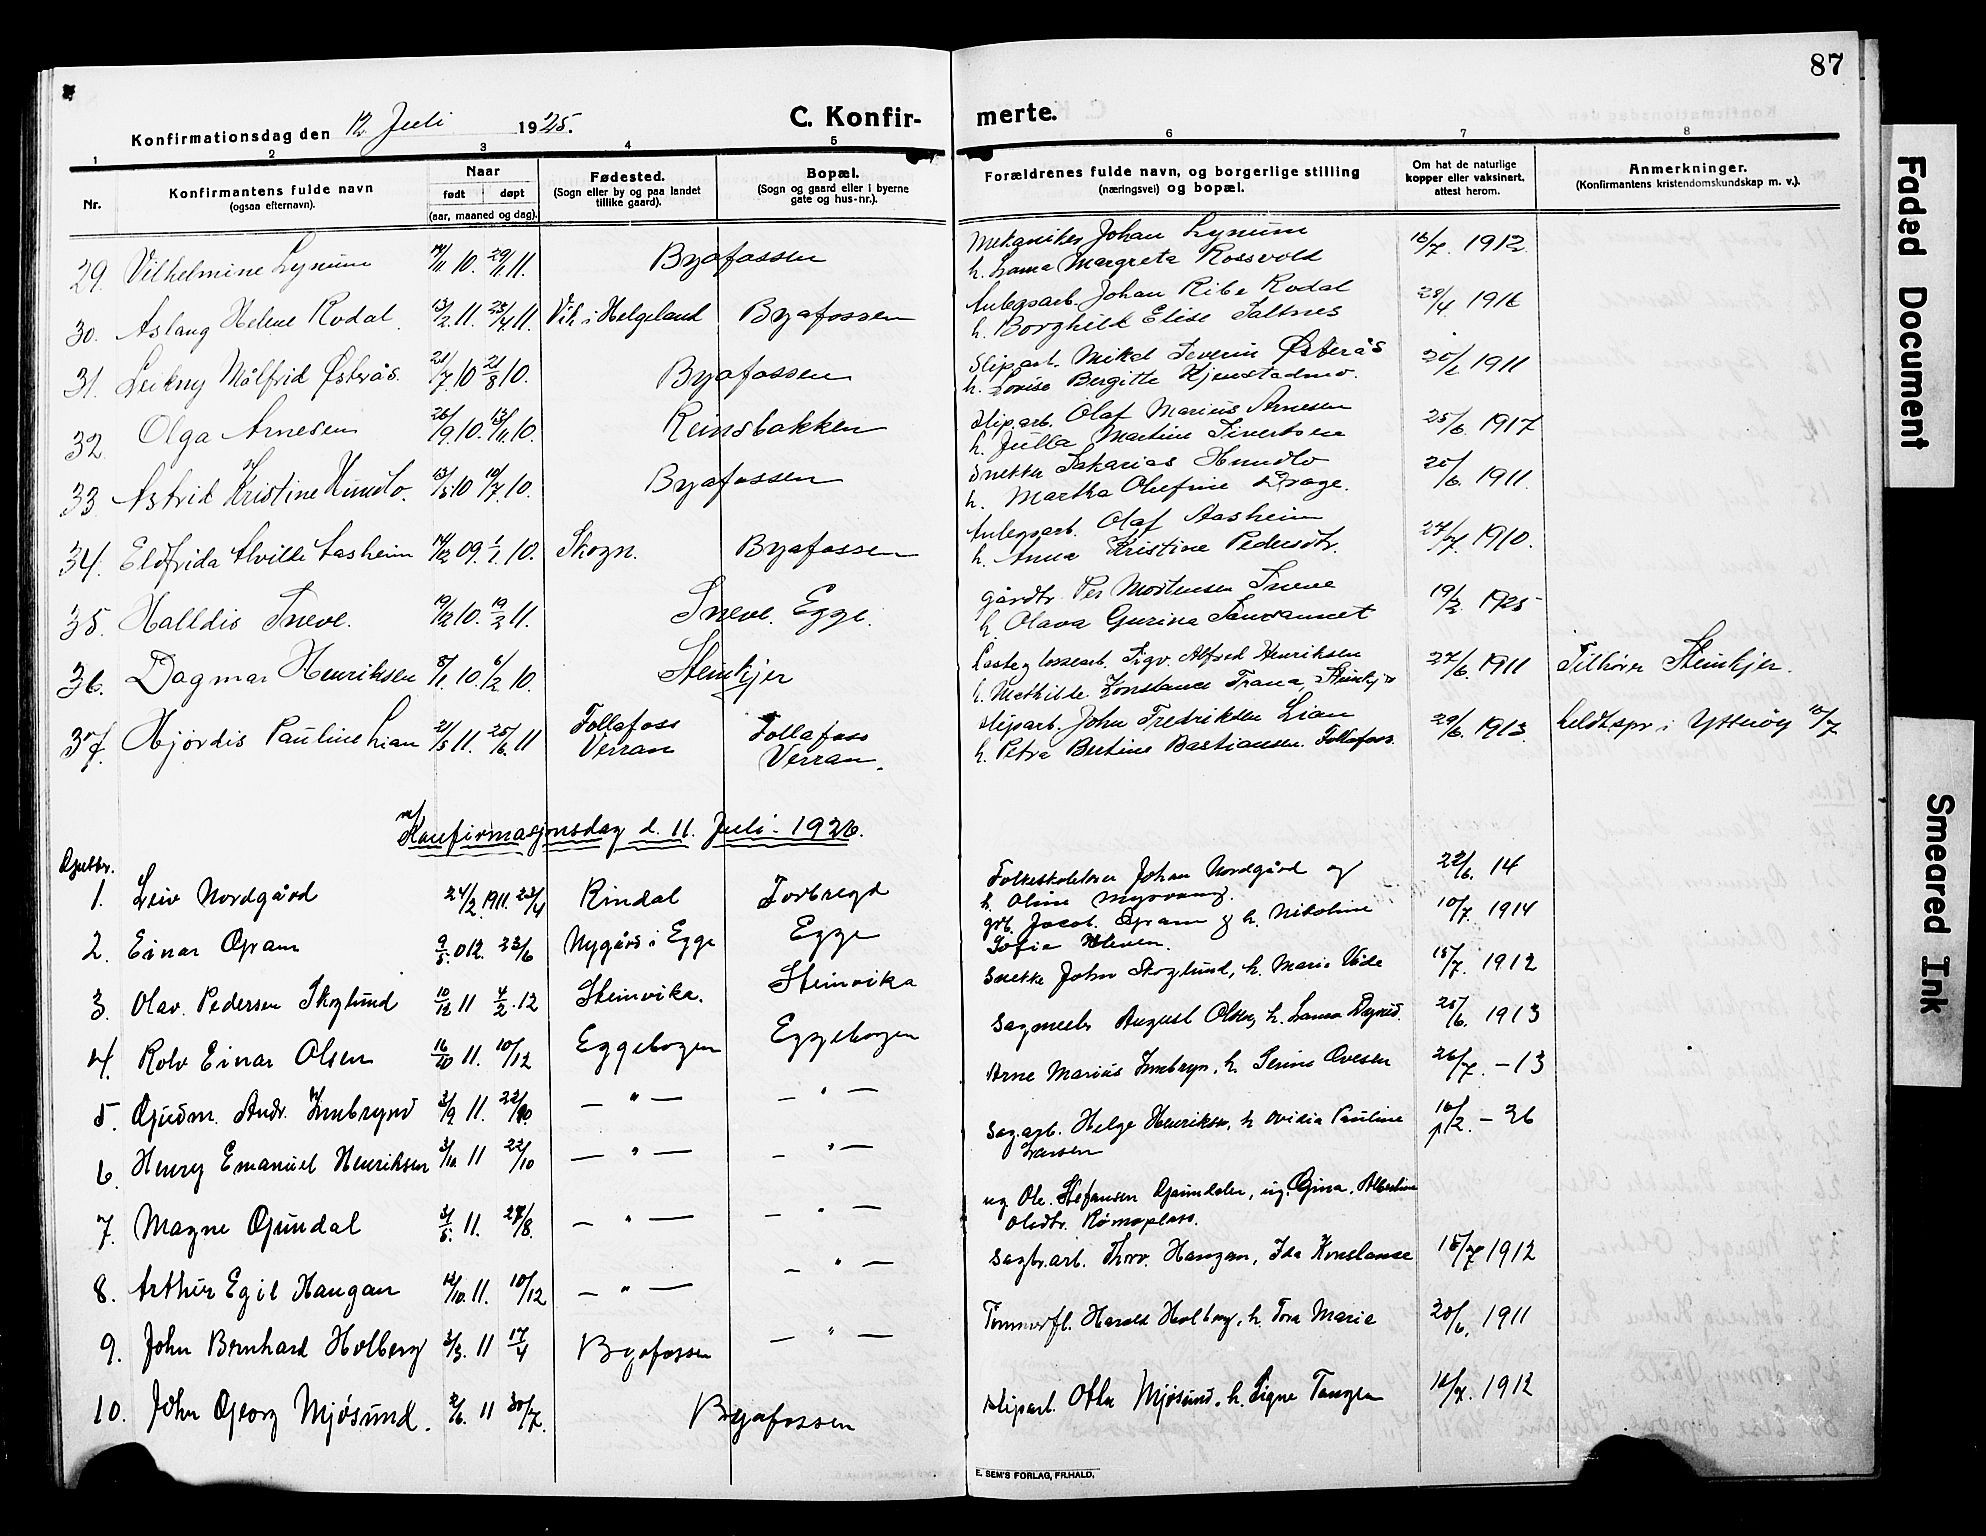 87
Konfirmationsdag den 12 Juli 1925.
C. Konfirmerte.
1 2 3 4 5 6 7 8
Nr.
Konfirmantens fulde navn
(ogsaa efternavn).
Naar
født døpt
(aar, maaned og dag).
Fødested.
(Sogn eller by og paa landet
tillike gaard).
Bopæl.
(Sogn og gaard eller i byerne
gate og hus-nr.).
Forældrenes fulde navn, og borgerlige stilling
(næringsvei) og bopæl.
Om hat de naturlige
kopper eller vaksinert,
attest herom.
Anmerkninger.
(Konfirmantens kristendomskundskap m. v.).
29. Vilhelmine Lynum 10. 11. Byafossen Mekaniker Johan Lynum 1912
h. Margreta Rossvold
30. Aslaug Helene Rodal 13/2 11. 23/4 11. Vik i Helgeland Byafossen Anlegsarb. Johan Ribe Rodal 28/4 1916
h. Borghild Elise Saltnes
31. Leikny Målfrid Østerås. 21/7 10 21/8 10. Byafossen Sliparb. Mikal Severin Østerås 1911
h. Lovise Bergitte Hjemstadmo.
32. Olga Arnesen 26/9 10. 13/11 10. Reinsbakken Sliparb. Olaf Marius Arnesen 25/6 1917
h. Julla Martine Sivertsen
33. Astrid Kristine Hundlo. 13/5 10 10/7 10. Byafossen Snekker Sakarias Hundlo 20/6 1911.
h. Martha Olufine Drage.
34. Eldfrida Alvilde Aasheim 14/12 09. 1/1 10. Skogn. Byafossen Anlegsarb. Olaf Aasheim 1910.
h. Anna Kristine Pedersdtr.
35. Halldis Sneve. 19/12 10. 19/2 11. Sneve. Egge. Gårdbr Per Mortensen Sneve 19/2 1925
h. Olava Gurina
36. Dagmar Henriksen 8/1 10. 6/2 10. Steinkjer Laste og lossearb. Sigv. Alfred Henriksen 27/6 1911 Tilhører Steinkjer.
h. Mathilde Konstance Trana, Steinkjer
37. Hjørdis Pauline Lian 21/5 11. 25/6 11 Follafoss Verran Follafoss Verran. Sliparb. John Fredriksen Lian 29/6 1913 i Ytterøy 10/7
h. Petra Bertine Bastiansen. Follafoss.
Konfirmasjonsdag d. 11. Juli. 1926.
Gutter.
1. Leiv Nordgård 24/2 1911. 23/4 Rindal Folkeskolelærer Johan Nordgård og 22/6. 14
h. Oline Myrvang
2. Einar Gram 9/5. 012. 23/6 Nygård i Egge Egge grb. Jacob. Gram og h. Nikoline 10/7. 1914
Sofia Kleven.
3. Olav. Pedersen Skoglund 10/12 11 4/2. 12 Steinvika. Steinvika Snekker John Skoglund, h. Marie 15/7. 1912
4. Rolv Einar Olsen 16/10 11. 10/12 Eggebogen Eggebogen Sagmester August Olsen, h. 25/6. 1913
5. Gudm. Andr. 3/9 11. 22/10 — " — — " — Arne Marius h. Serine Ovesen 26/7. - 13
6. Henry Emanuel Henriksen 3/10. 11 22/10 — " — — " — Sag.arb. Helge Henriksen, h Ovidia Pauline - 26
Larsen
7. Magne Gjundal 3/5. 11. 27/8. — " — — " — ug. Ole. Stefansen ug. Gina. Albertine
Olsdtr. Rømoplass.
8. Arthur Egil Haugan 12/10. 11. 10/12 — " — — " — Sagbr.arb. Thorv. Haugan, Ida Konstanse 15/7 1912
9. John Bernhard Holberg 3/3. 11 17/4 Byafossen — " — Tømmerfl. Harald Holberg, h. Tora Marie 20/6. 1911
10. John Georg Mjøsund. 2/6. 11 30/7. Byafossen Sliparb. Otto Mjøsund, h. Signe Tangen 12/7. 1912
E. SEM'S FORLAG, FR.HALD.
Faded Document
Smeared Ink